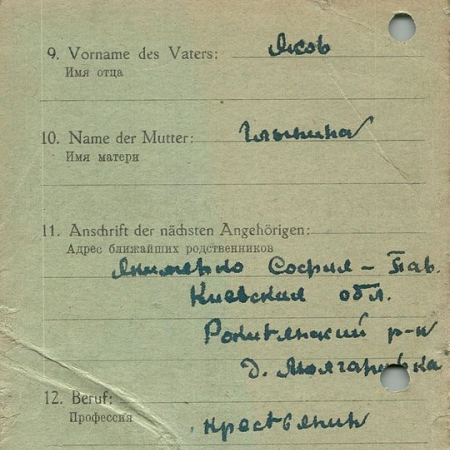 9. Vorname des Vaters: Яков
Имя отца
10. Name der Mutter:
Имя матери
11. Anschrift der nächsten Angehörigen:
Адрес ближайших родственников
Якименко София – Пав.
Киевская обл.
Рокитянский р-н
д.
12. Beruf:
Профессия
крестьянин